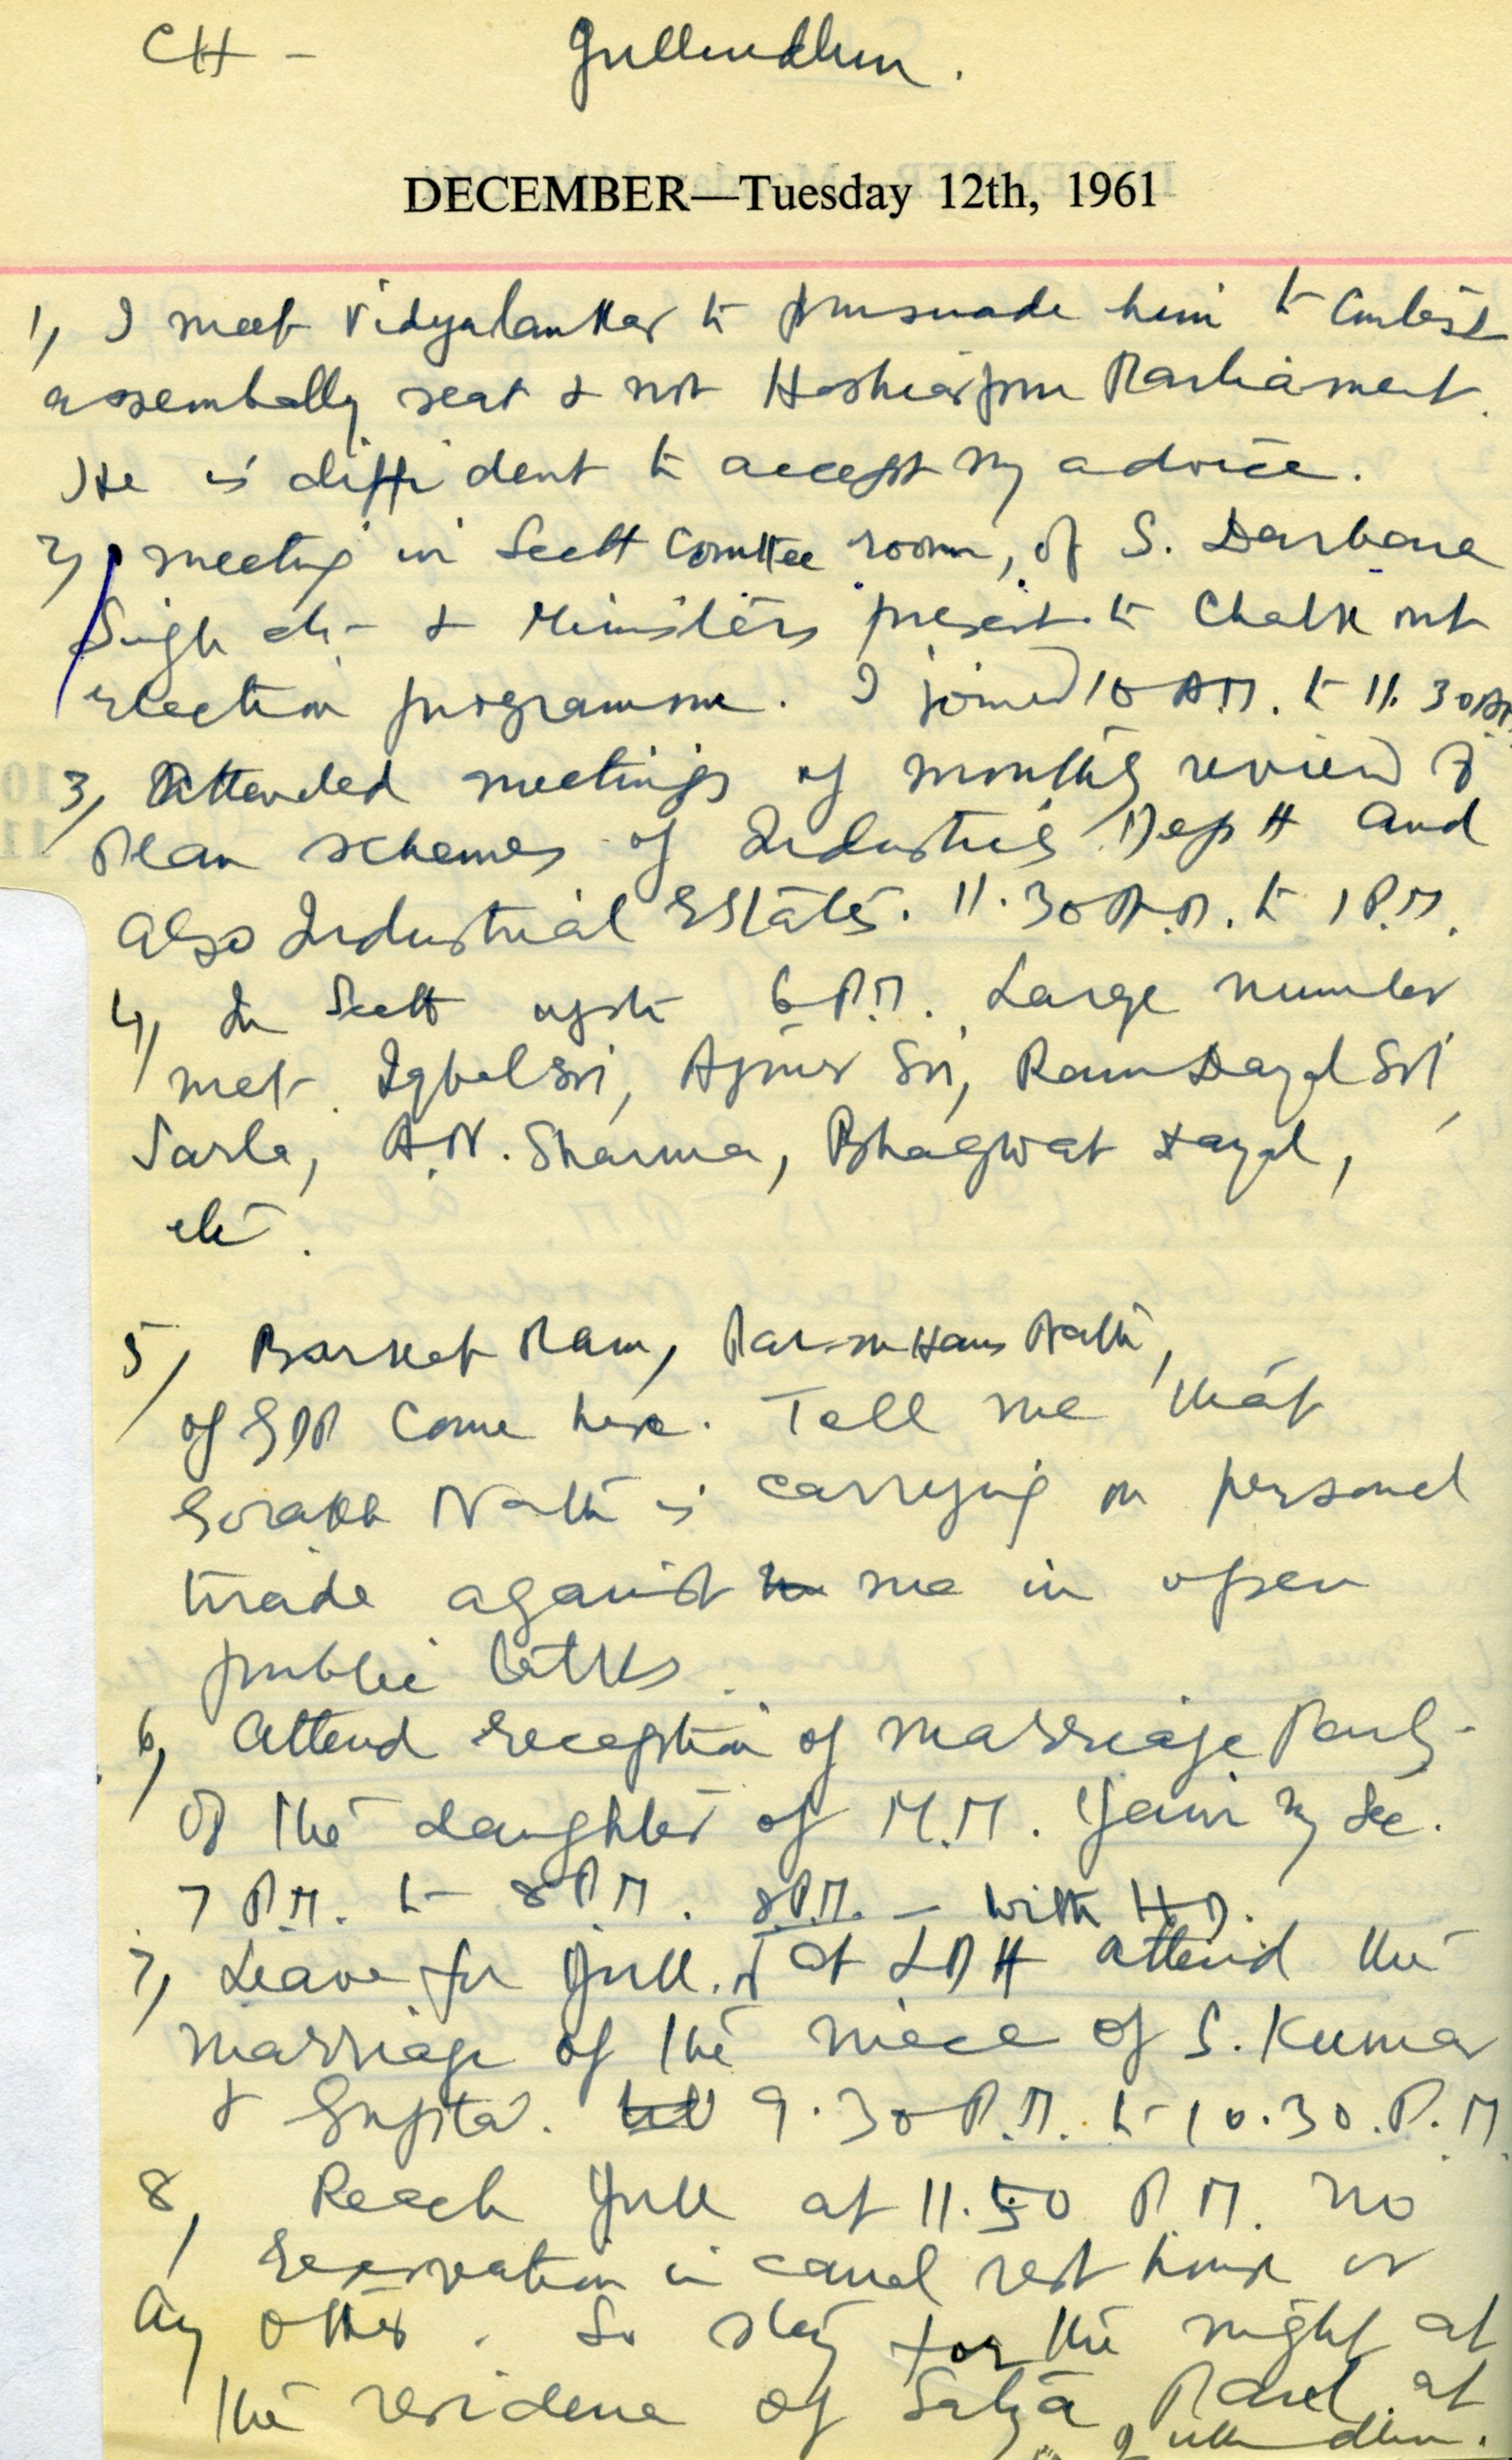 CH - Jullundhur.
DECEMBER—Tuesday 12th, 1961
1, I meet Vidyalankar to prusuade him to Contest
assembally seat & not Hoshiarpur Parliament.
He is diffident to accept my advice.
2, meeting in Sectt Comttee room, of S. Darbara
Singh & Ministers present to Chalk out
election programme. I joined 10 A.M. to 11.30 AM
3, Attended meetings of monthly review of
Plan schemes of Industries Deptt and
also Industrial Estates. 11.30 A.M. to 1 P.M.
4, In Sectt upto 6 P.M. Large number
met. Iqbal Sri, Ajmer Sri, Ram Dayal Sri,
Sarla, A.N. Sharma, Bhagwat Dayal,
etc.
5, Barket Ram, Param Hans Nath,
of GDP Come here. Tell me that
Gorakh Nath is carrying on personal
tirade against me in open
public talks.
6, Attend reception of marriage Party
of the daughter of M.M. Jain my Sec.
7 P.M. to 8 P.M. 8 P.M. - with H.D.
7, Leave for Jull. & at LDH attend the
marriage of the niece of S. Kumar
& Gupta. 9.30 P.M. to 10.30. P.M.
8, Reach Jull at 11.50 P.M. No
reservation in canal rest house or
any other. So stay for the night at
the residence of Satya Paul at
Jullundhur.